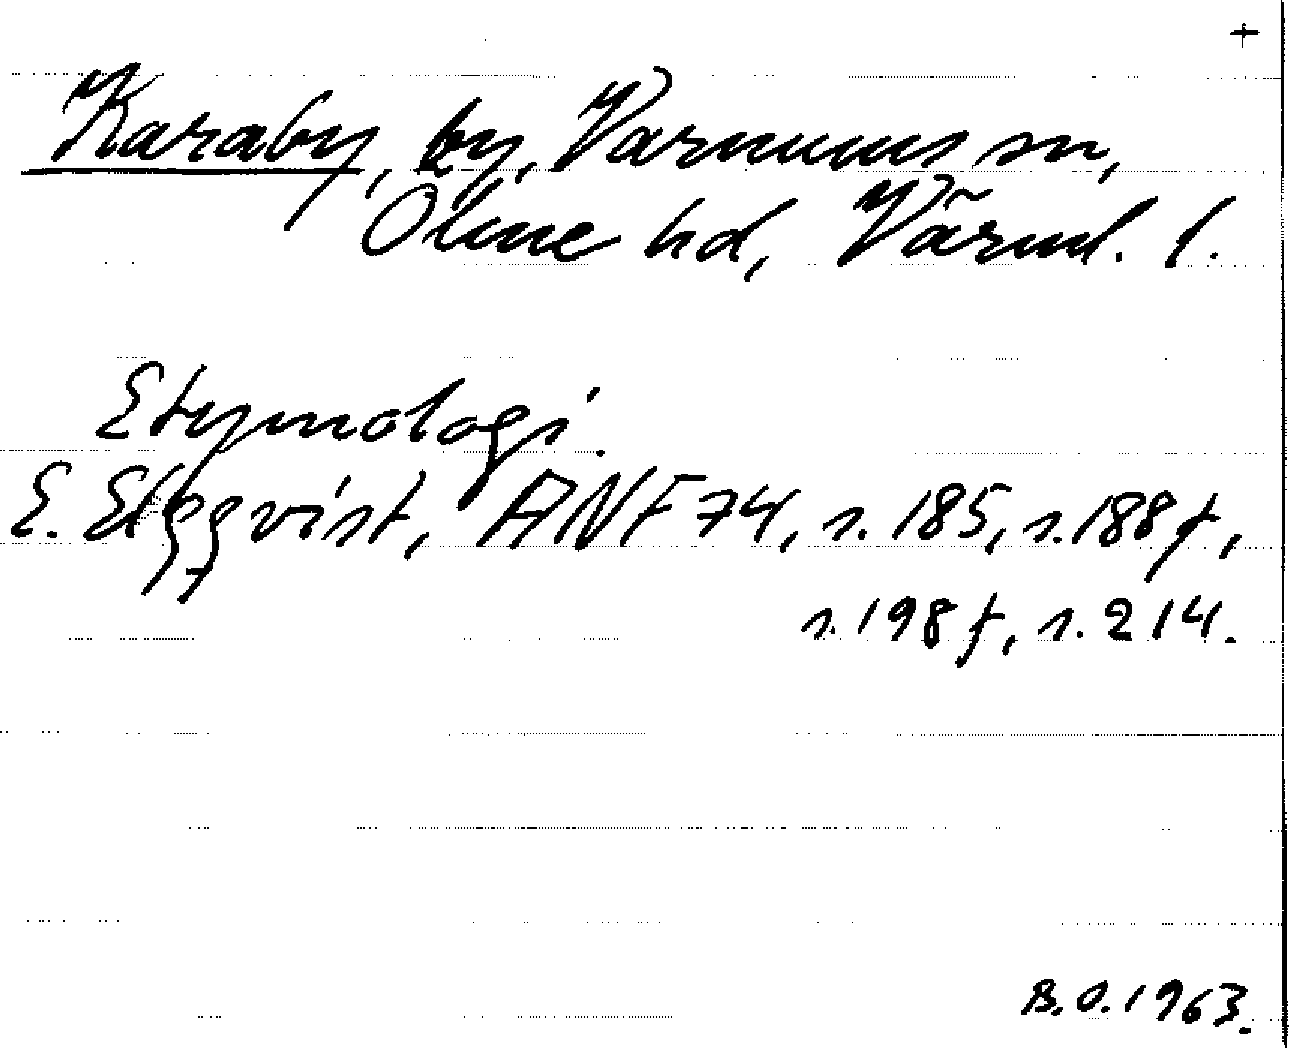 +
Karaby, by, Varnums sn,
Ölme hd, Värml. l.
Etymologi.
E. Elgqvist, ANF 74, s. 185, s. 188 f,
s. 198 f, s. 214.
B.O. 1963.